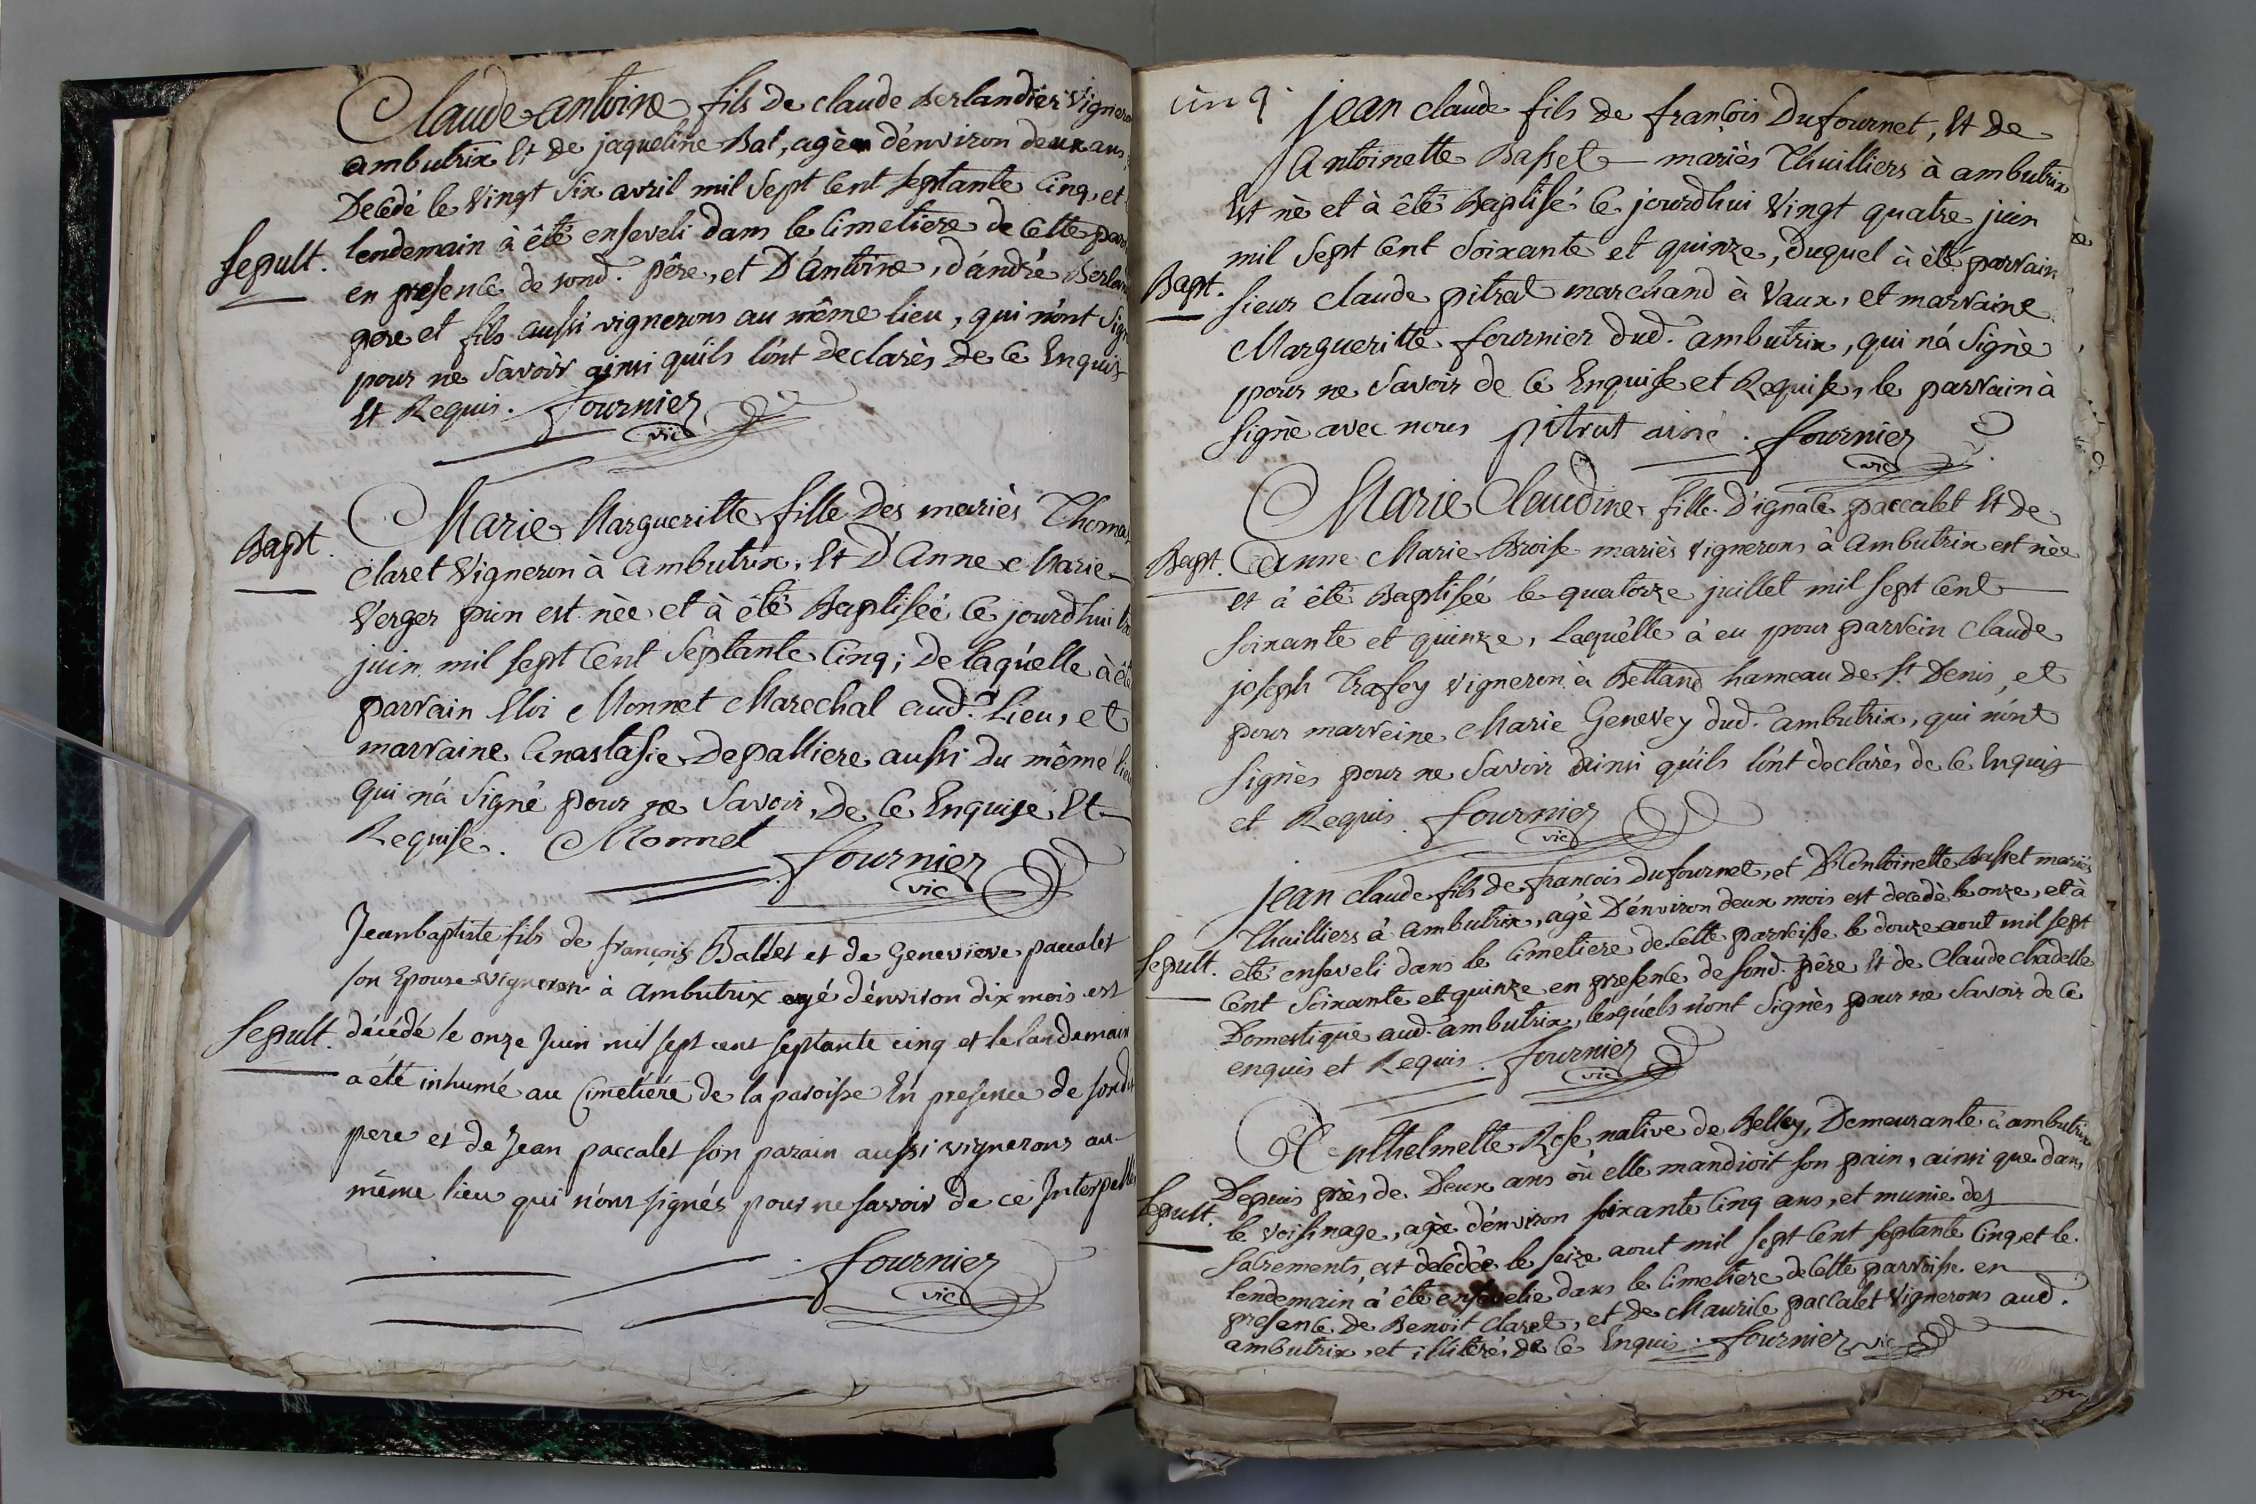 Claude antoine fils de claude Berlandier Vigneron
ambutrix Et de jaqueline Bat, agè d'environ deux ans
Decedé le Vingt Six avril mil Sept Cent Septante Cinq, et
Sepult. lendemain à êté enseveli dans le Cimetiere de Cette par
en presence de sond. pêre, et D'Antoine, d'andré Berlan
pere et fils aussi vignerons au même lieu, qui n'ont Sign
pour ne Savoir ainsi qu'ils l'ont declarès de Ce Enquis
Et Requis. fournier
vic
Bapt. Marie Margueritte fille Des mariès Thomas
Claret Vigneron à Ambutrix, Et D'Anne Marie
Verger pion est nèe et à êté Baptiseé Ce jourdhui
juin mil sept Cent Septante Cinq; De laquelle à êt
parvain Eloi Monnet Marechal aud. Lieu, et
marvaine Anastasie Depalliere aussi du même lieu
qui n'à Signé pour ne Savoir, De Ce Enquise Et
Requise. Monnet
fournier
vic
Jeanbaptiste fils de françois Ballet et de Genevieve paccalet
son Epouse vignerons à Ambutrix agé d'environ dix mois est
Sepult. décédé le onze Juin mil sept cent septante cinq et le landemain
a été inhumé au Cimetiére de la paroisse En presence de sond
pere et de Jean paccalet son parain aussi vignerons au
même lieu qui n'ont signés pour ne savoir de ce Interpellés
fournier
vic
cinq.
jean claude fils de françois Dufournet, Et de
Antoinette Basset mariès Thuilliers à ambutrix
Est nè et à êté Baptisé Ce jourdhui Vingt quatre juin
mil Sept Cent Soixante et quinze, duquel à êté parvain
Bapt. sieur Claude pitrat marchand à Vaux, et marvaine
Margueritte fournier dud. ambutrix, qui n'à Signè
pour ne Savoir de Ce Enquise et Requise, le parvain à
Signè avec nous pitrat ainé. fournier
vic
Marie Claudine fille D'ignace paccalet Et De
Bapt. Anne Marie Broise mariès Vignerons à Ambutrix est nèe
et à êté Baptisée le quatorze juillet mil sept Cent
soixante et quinze, Laquelle à eu pour parvein Claude
joseph Trafey Vigneron à Bettand hameau de St. Denis, et
pour marveine Marie Genevey dud. ambutrix, qui n'ont
Signès pour ne Savoir ainsi qu'ils l'ont declarès de Ce Enquis
et Requis. fournier
vic
jean Claude fils de françois Dufournet, et D'Antoinette Basset mariès
Thuilliers à Ambutrix, agè D'environ deux mois est decedè le onze, et à
Sepult. êté enseveli dans le Cimetiere de Cette parroisse le douze aout mil sept
Cent Soixante et quinze en presence de sond. pêre Et de Claude Chadelle
Domestique aud. ambutrix, lesquels n'ont Signès pour ne Savoir de Ce
enquis et Requis. fournier
vic
Anthelmette Rose native de Belley, Demeurante à ambutrix
Depuis près de Deux ans où elle mandioit son pain, ainsi que dans
Sepult. le voisinage, agèe d'environ soixante Cinq ans, et munie des
Sacrements, est decedèe le seize aout mil sept Cent septante Cinq et le
lendemain à êté ensevelie dans le Cimetiere de Cette parroisse en
presence de Benoit Claret, et de Maurice paccalet Vignerons aud.
ambutrix, et illiterés de Ce Enquis. fournier vic